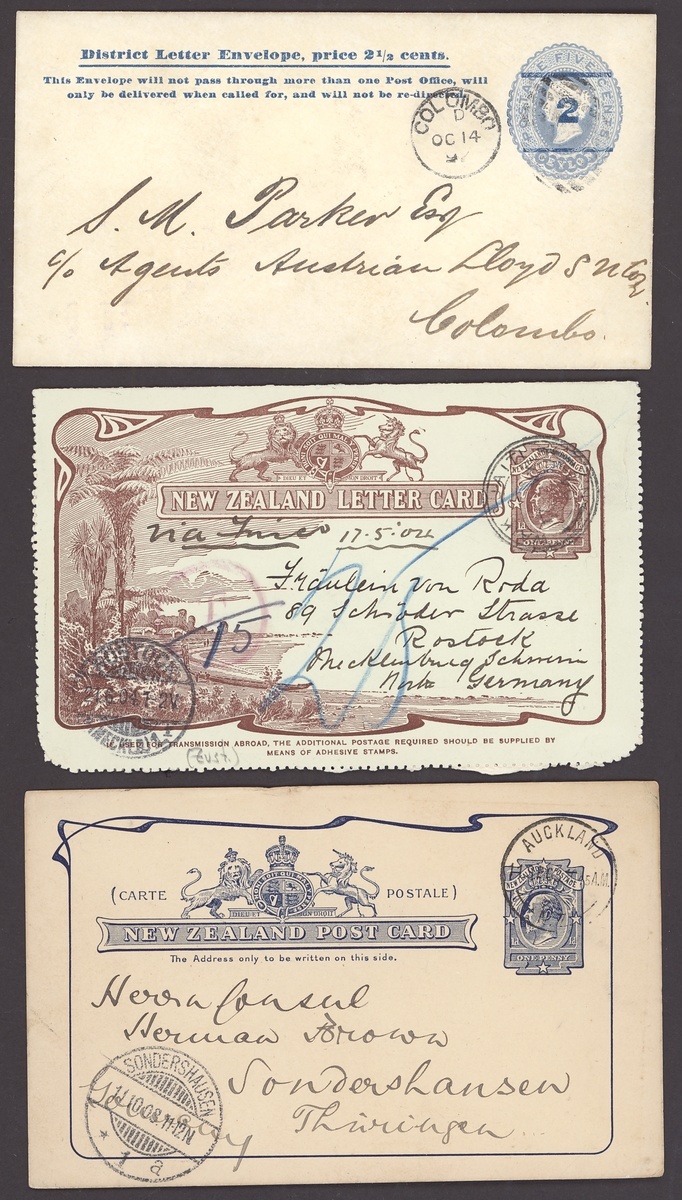 District Letter Envelope, price 2½ cents.
This Envelope will not pass through more than one Post Office, will
only be delivered when called for, and will not be re-directed.
COLOMBO
D
OC 14
POSTAGE FIVE CENTS
2
CEYLON
S. M. Parker Esq
c/o Agents Austrian Lloyd S N Co.
Colombo.
DIEU ET MON DROIT
NEW ZEALAND LETTER CARD
ONE PENNY
via Frisco 17.5.'04
Fräulein von Roda
89 Schröder Strasse
Rostock
Mecklenburg Schwerin
Germany
15
25
ROSTOCK
IF USED FOR TRANSMISSION ABROAD, THE ADDITIONAL POSTAGE REQUIRED SHOULD BE SUPPLIED BY
MEANS OF ADHESIVE STAMPS.
AUCKLAND
(CARTE POSTALE)
DIEU ET MON DROIT
NEW ZEALAND POST CARD
The Address only to be written on this side.
NEW ZEALAND POSTAGE
1d 1d
ONE PENNY
Herrn Consul
Herman Brown
Sondershausen
Thüringen
Germany
SONDERSHAUSEN
11.10.08.11-12N
* 1 a